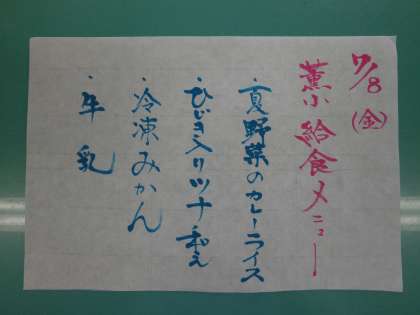 7/8(金)
薫小給食メニュー
・夏野菜のカレーライス
・ひじき入りツナ和え
・冷凍みかん
・牛乳